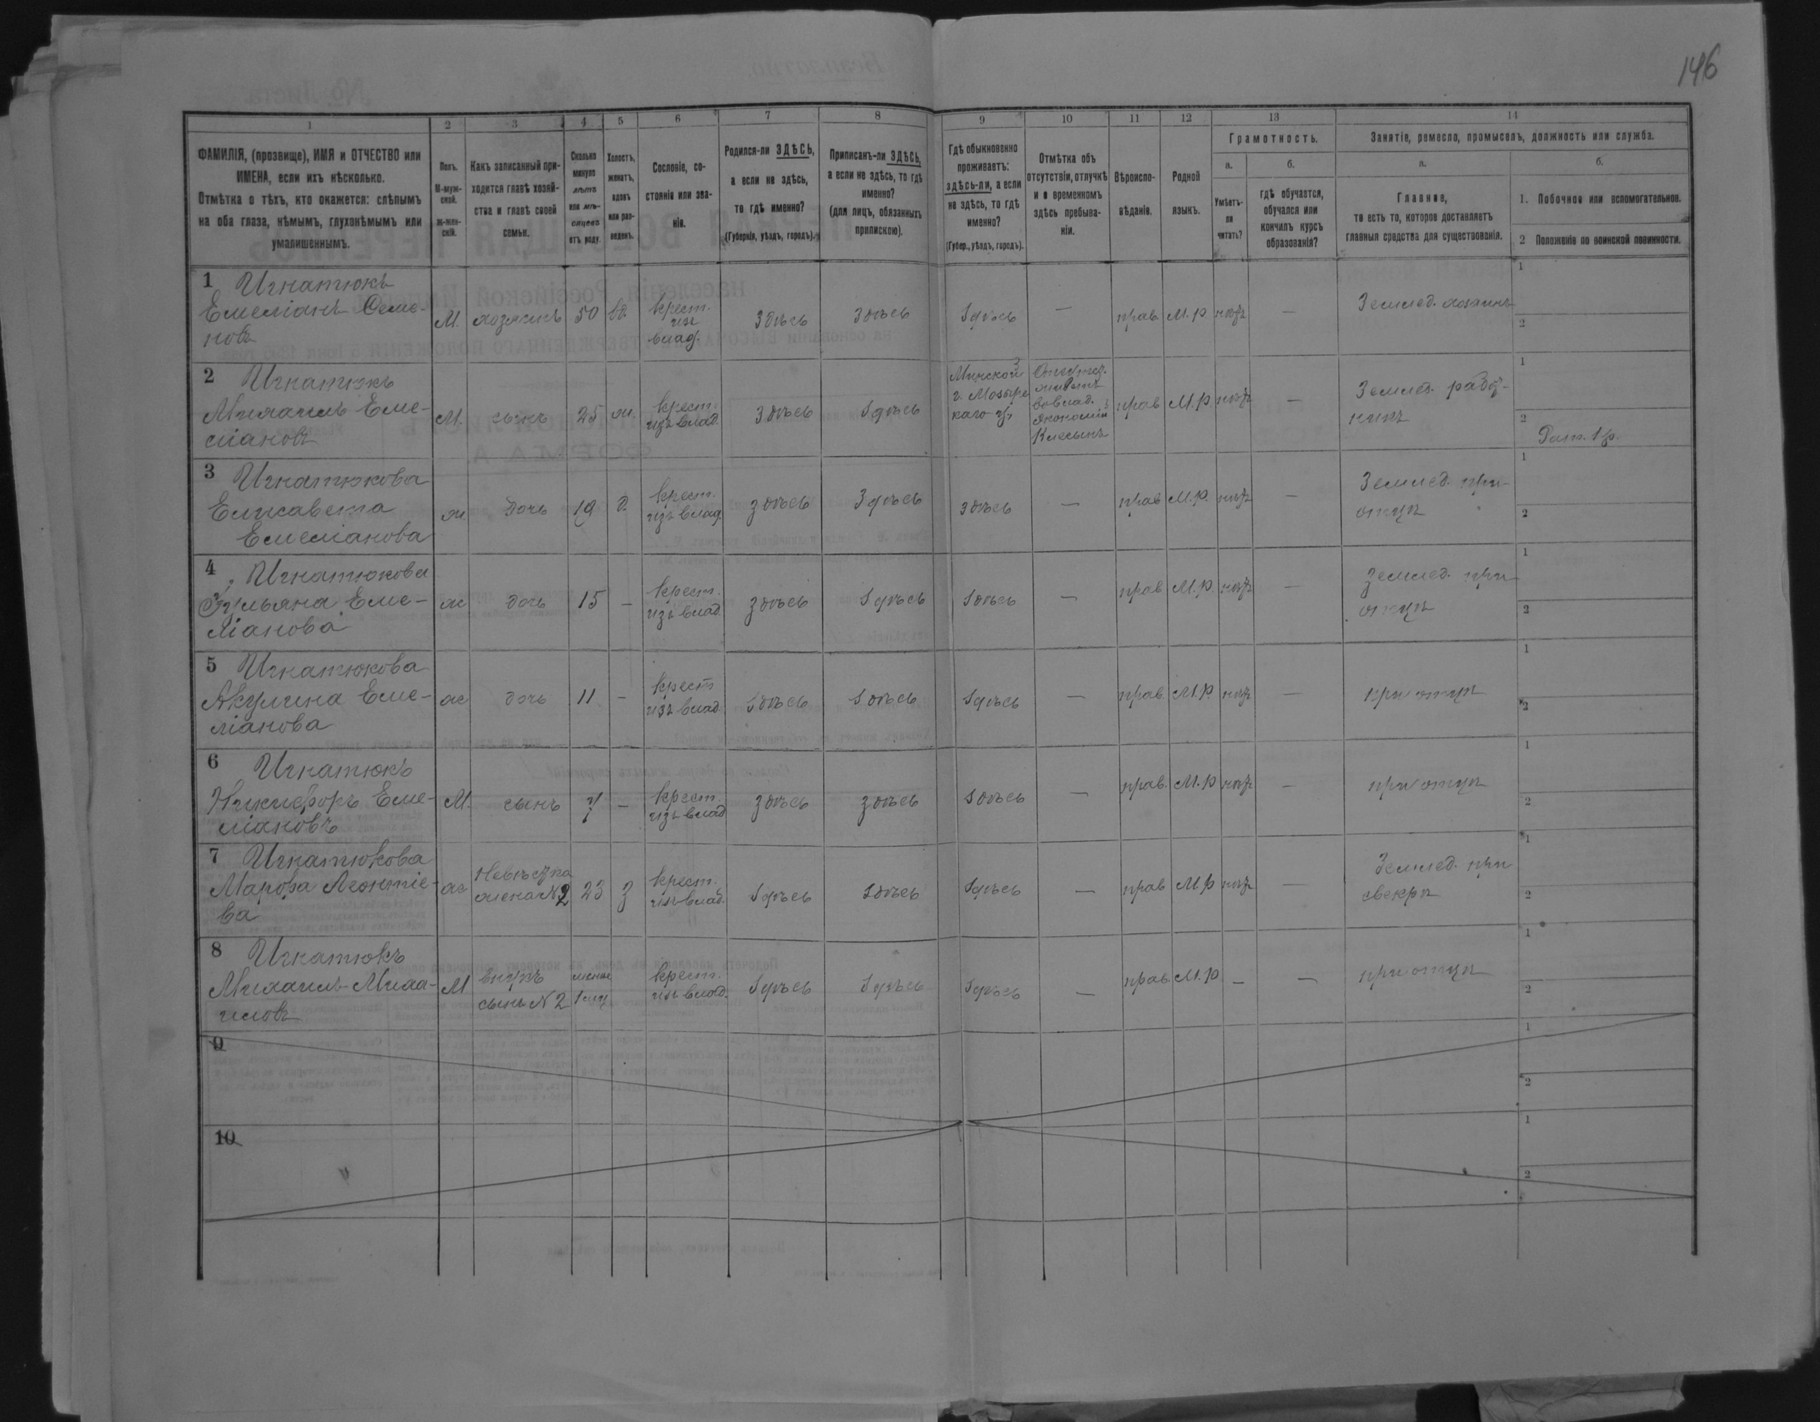 146
1 2 3 4 5 6 7 8 9 10 11 12 13 14
ФАМИЛІЯ, (прозвище), ИМЯ и ОТЧЕСТВО или
ИМЕНА, если ихъ нѣсколько.
Отмѣтка о тѣхъ, кто окажется: слѣпымъ
на оба глаза, нѣмымъ, глухонѣмымъ или
умалишеннымъ.
Полъ.
М-муж-
ской.
Ж-жен-
скій.
Какъ записанный при-
ходится главѣ хозяй-
ства и главѣ своей
семьи.
Сколько
минуло
лѣтъ
или мѣ-
сяцевъ
отъ роду.
Холостъ,
женатъ,
вдовъ
или раз-
веденъ.
Сословіе, со-
стояніе или зва-
ніе.
Родился-ли ЗДѢСЬ,
а если не здѣсь,
то гдѣ именно?
(Губернія, уѣздъ, городъ).
Приписанъ-ли ЗДѢСЬ,
а если не здѣсь, то гдѣ
именно?
(для лицъ, обязанныхъ
припискою).
Гдѣ обыкновенно
проживаетъ:
здѣсь-ли, а если
не здѣсь, то гдѣ
именно?
(Губер., уѣздъ, городъ).
Отмѣтка объ
отсутствіи, отлучкѣ
и о временномъ
здѣсь пребыва-
ніи.
Вѣроиспо-
вѣданіе.
Родной
языкъ.
Грамотность.
а.
Умѣетъ-
ли
читать?
б.
гдѣ обучается,
обучался или
кончилъ курсъ
образованія?
Занятіе, ремесло, промыселъ, должность или служба.
а.
Главное,
то есть то, которое доставляетъ
главныя средства для существованія.
б.
1. Побочное или вспомогательное.
2 Положеніе по воинской повинности.
1 Игнатюкъ
Емеліанъ Семе-
новъ
М. хозяинъ 50 вд. крест.
изъ
влад. Здѣсь Здѣсь Здѣсь — прав. М.р — Землед. хозяинъ 1
2
2 Игнатюкъ
Михаилъ Еме-
ліановъ
М. сынъ 25 ж. крест.
изъ влад. Здѣсь Здѣсь Минской
г. Мозырс
каго у. прав М.р — Землед. работ-
никъ 1
2
3 Игнатюкова
Елисавета
Емеліанова
ж дочь 19 д. крест.
изъ влад. здѣсь Здѣсь здѣсь — прав. М.р — Землед. при
отцѣ 1
2
4 Игнатюкова
Ульяна Еме-
ліанова
ж дочь 15 — крест.
изъ влад здѣсь здѣсь здѣсь — прав. М.р — Землед. при
отцѣ 1
2
5 Игнатюкова
Акулина Еме-
ліанова
ж дочь 11 — крест
изъ влад здѣсь здѣсь здѣсь — прав. М.р — при отцѣ 1
2
6 Игнатюкъ
Никифоръ Еме-
ліановъ
М. сынъ 7 — крест.
изъ влад здѣсь здѣсь здѣсь — прав. М.р — при отцѣ 1
2
7 Игнатюкова
Марфа Леонтіе-
ва
ж Невѣстка
жена №2 23 з крест.
изъ влад. здѣсь здѣсь здѣсь — прав М.р — Землед. при
свекрѣ 1
2
8 Игнатюкъ
Михаилъ Миха-
иловъ
М внукъ
сынъ №2 менѣе
1 мѣ крест.
изъ влад. здѣсь здѣсь здѣсь — прав М.р. — — при отцѣ 1
2
9
1
2
10
1
2